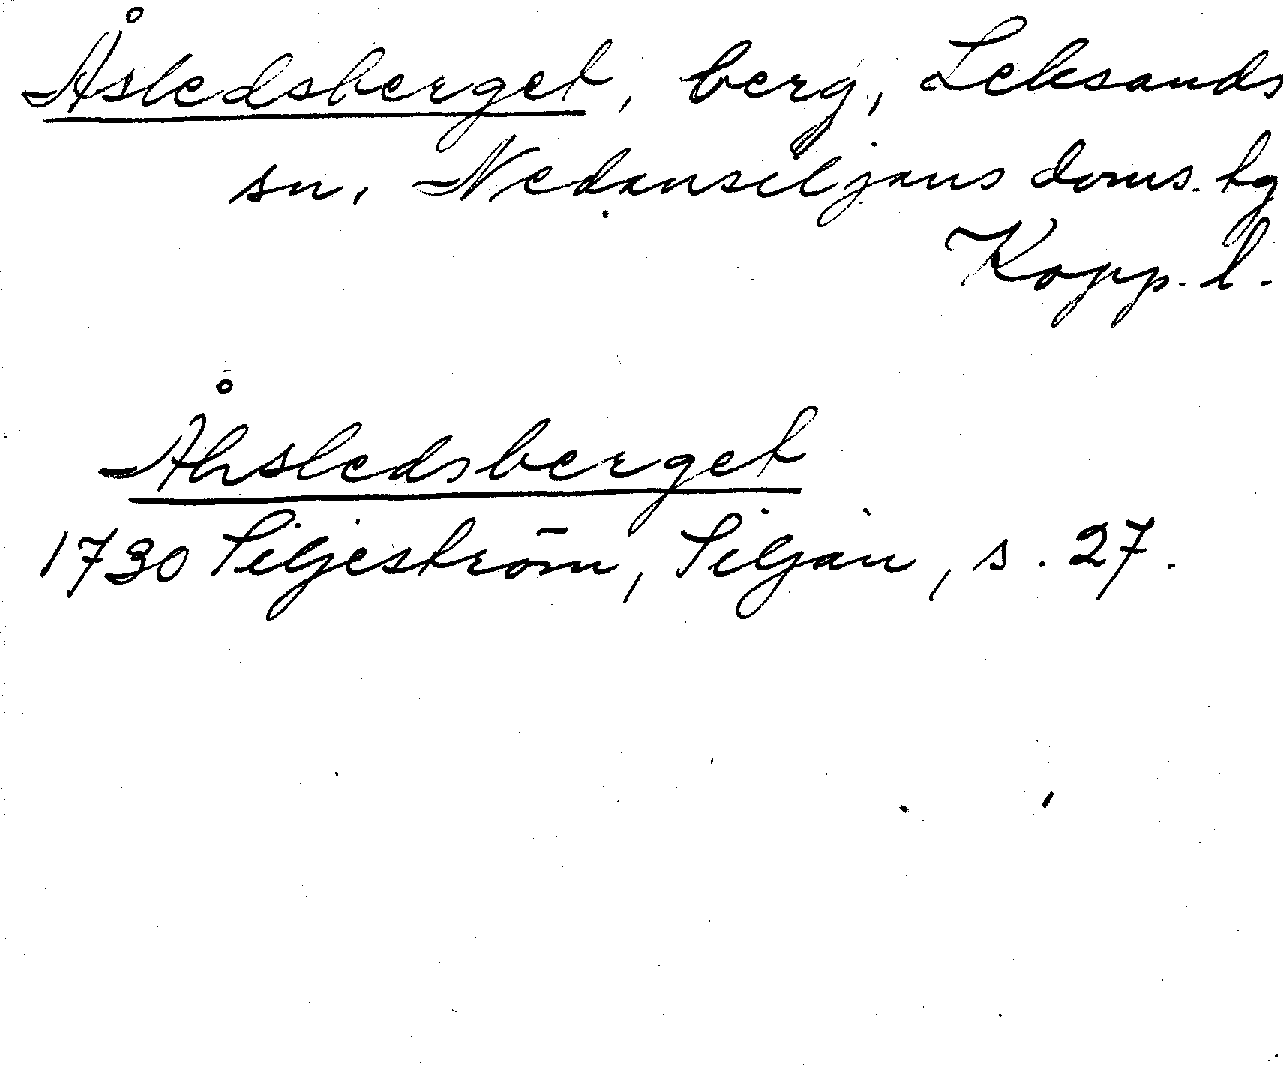 Åsledsberget, berg, Leksands
sn, Nedansiljans doms. tg
Kopp. l.
Åhsledsberget
1730 Siljeström, Siljan, s. 27.